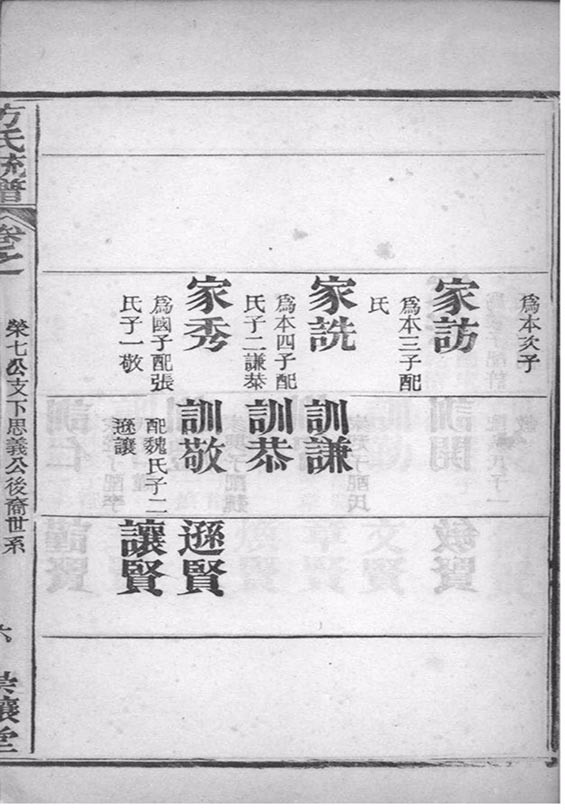 爲本次子
家訪
爲本三子配
氏
家詵
爲本四子配
氏子二謙恭
家秀
爲國子配張
氏子一敬
訓謙
訓恭
訓敬
配魏氏子二
遜讓
遜賢
讓賢
方氏統譜
卷之
榮七公支下思義公後裔世系
六
讓堂